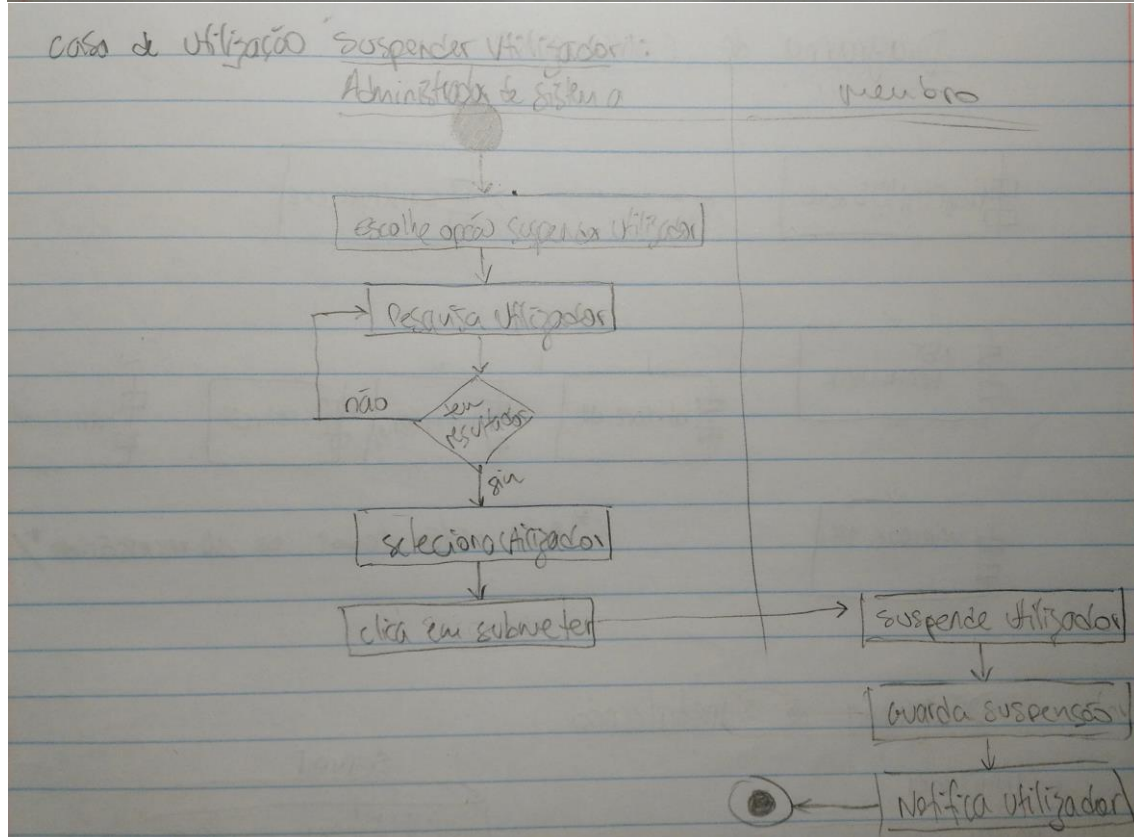 caso de Utilização Suspender Utilizador:
Administrador de Sistema
membro
Escolhe opção suspender utilizador
Pesquisa Utilizador
não
sem resultados
sim
seleciona utilizador
clica em submeter
suspende utilizador
Guarda suspensão
Notifica utilizador